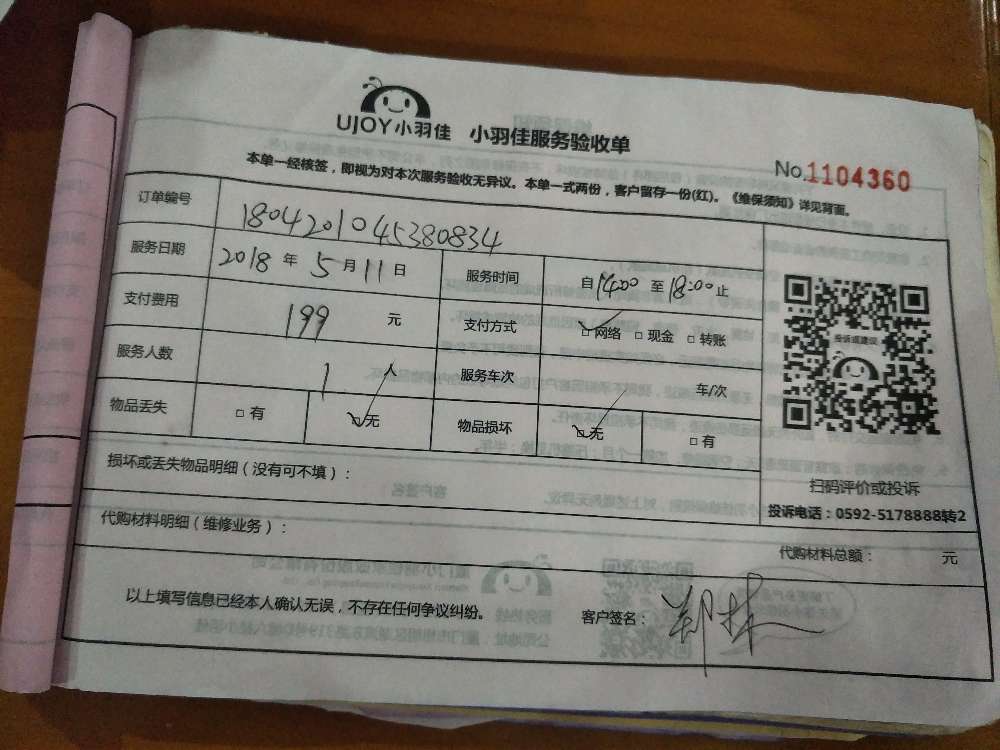 UJOY小羽佳 小羽佳服务验收单
No.1104360
本单一经核签，即视为对本次服务验收无异议。本单一式两份，客户留存一份(红)。《维保须知》详见背面。
订单编号 1804201045380834
服务日期 2018 年 5 月 11 日 服务时间 自14:00 至 18:00 止
支付费用 199 元 支付方式 □ 网络 □ 现金 □ 转账
服务人数 1 人 服务车次 车/次
物品丢失 □ 有 □无 物品损坏 □无 □ 有
投诉或建议
扫码评价或投诉
投诉电话：0592-5178888转2
损坏或丢失物品明细（没有可不填）：
代购材料明细（维修业务）：
代购材料总额： 元
以上填写信息已经本人确认无误，不存在任何争议纠纷。 客户签名：